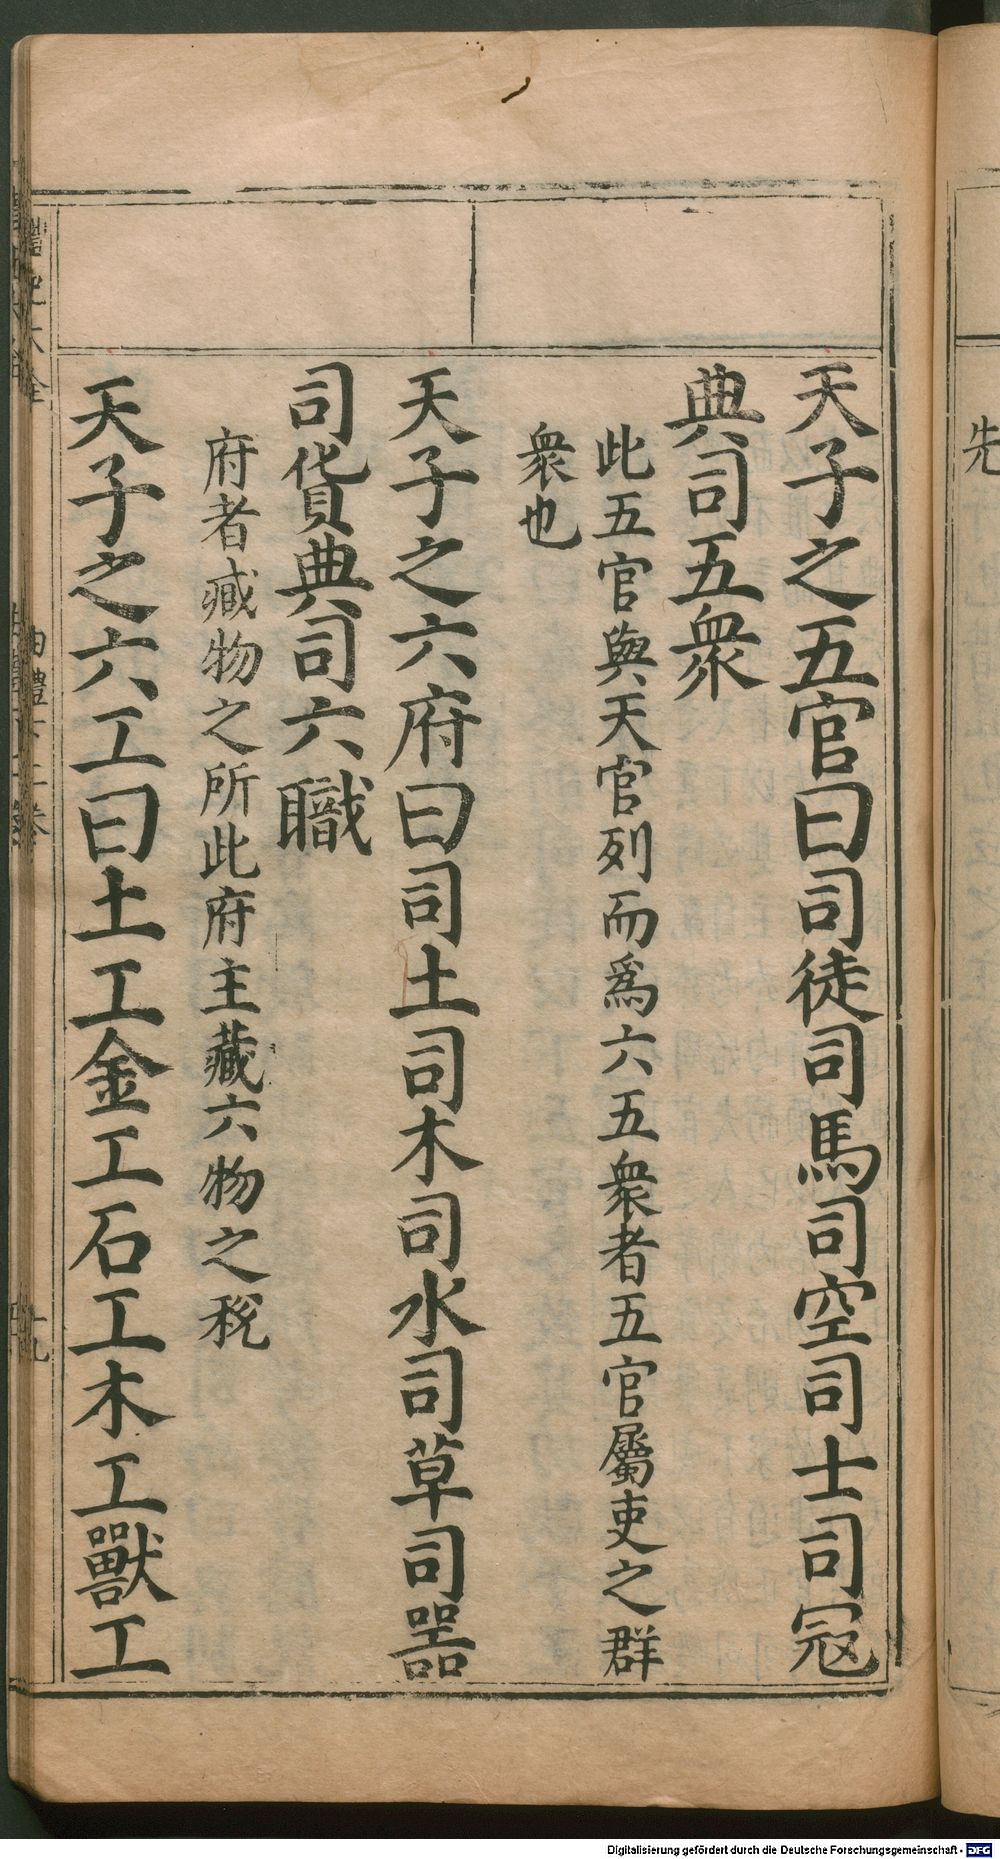 天子之五官曰司徒司馬司空司士司冦
典司五衆
此五官與天官列而爲六五衆者五官屬吏之群
衆也
天子之六府曰司土司木司水司草司器
司貨典司六職
府者藏物之所此府主藏六物之稅
天子之六工曰土工金工石工木工獸工
先
Digitalisierung gefördert durch die Deutsche Forschungsgemeinschaft - DFG